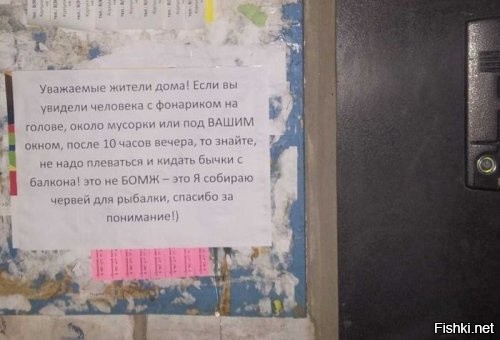 Уважаемые жители дома! Если вы
увидели человека с фонариком на
голове, около мусорки или под ВАШИМ
окном, после 10 часов вечера, то знайте,
не надо плеваться и кидать бычки с
балкона! это не БОМЖ – это Я собираю
червей для рыбалки, спасибо за
понимание!)
Fishki.net